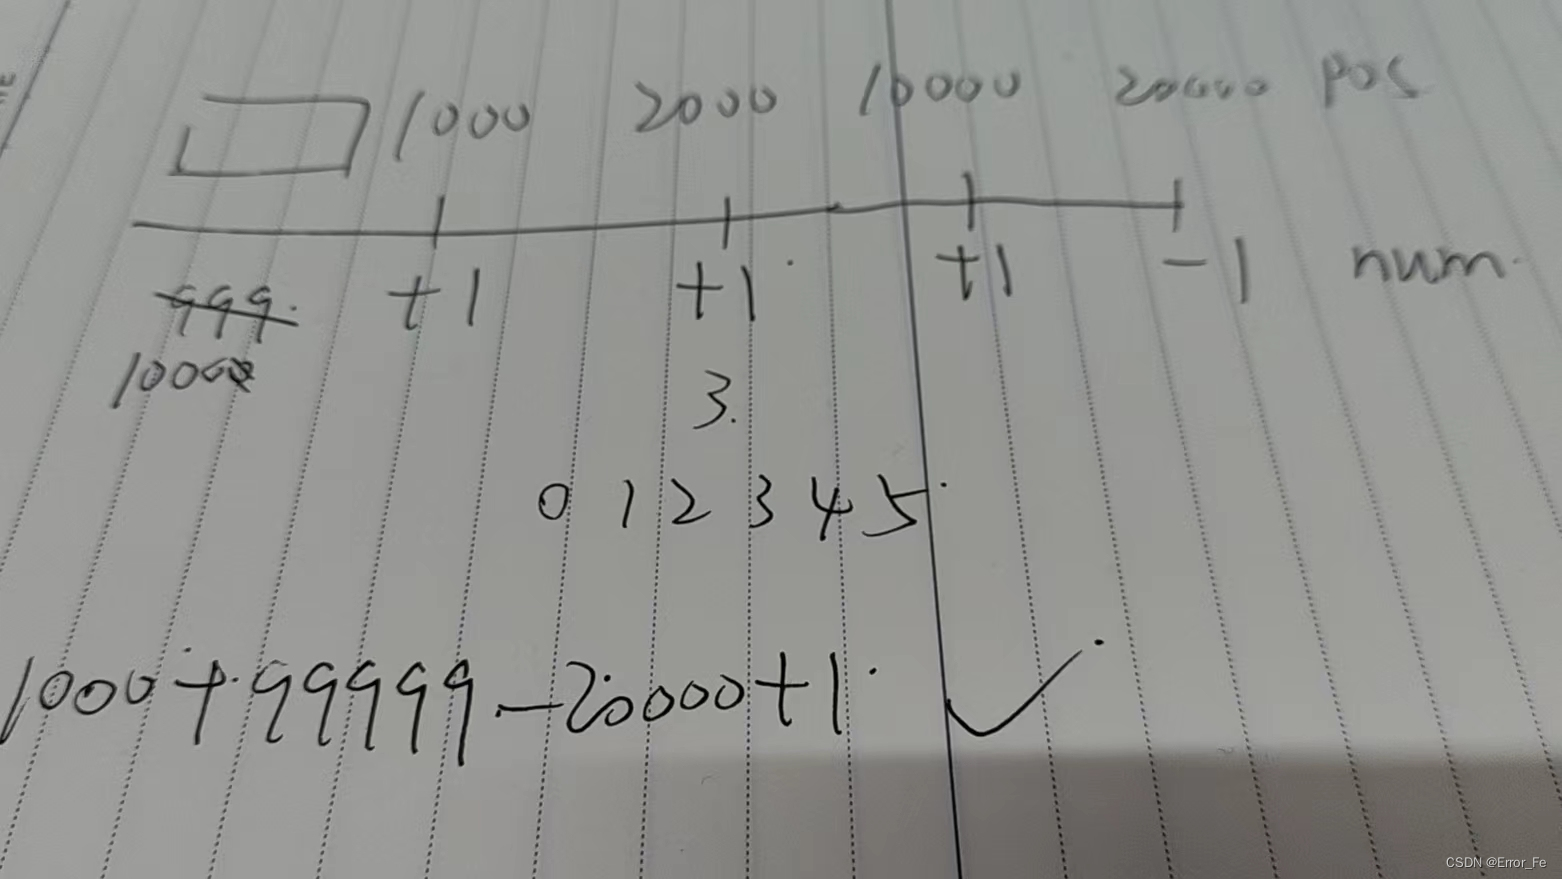 1000 2000 10000 20000 pos
999. +1 +1 +1 -1 num.
1000
3.
0 1 2 3 4 5
1000+99999-20000+1
CSDN @Error_Fe